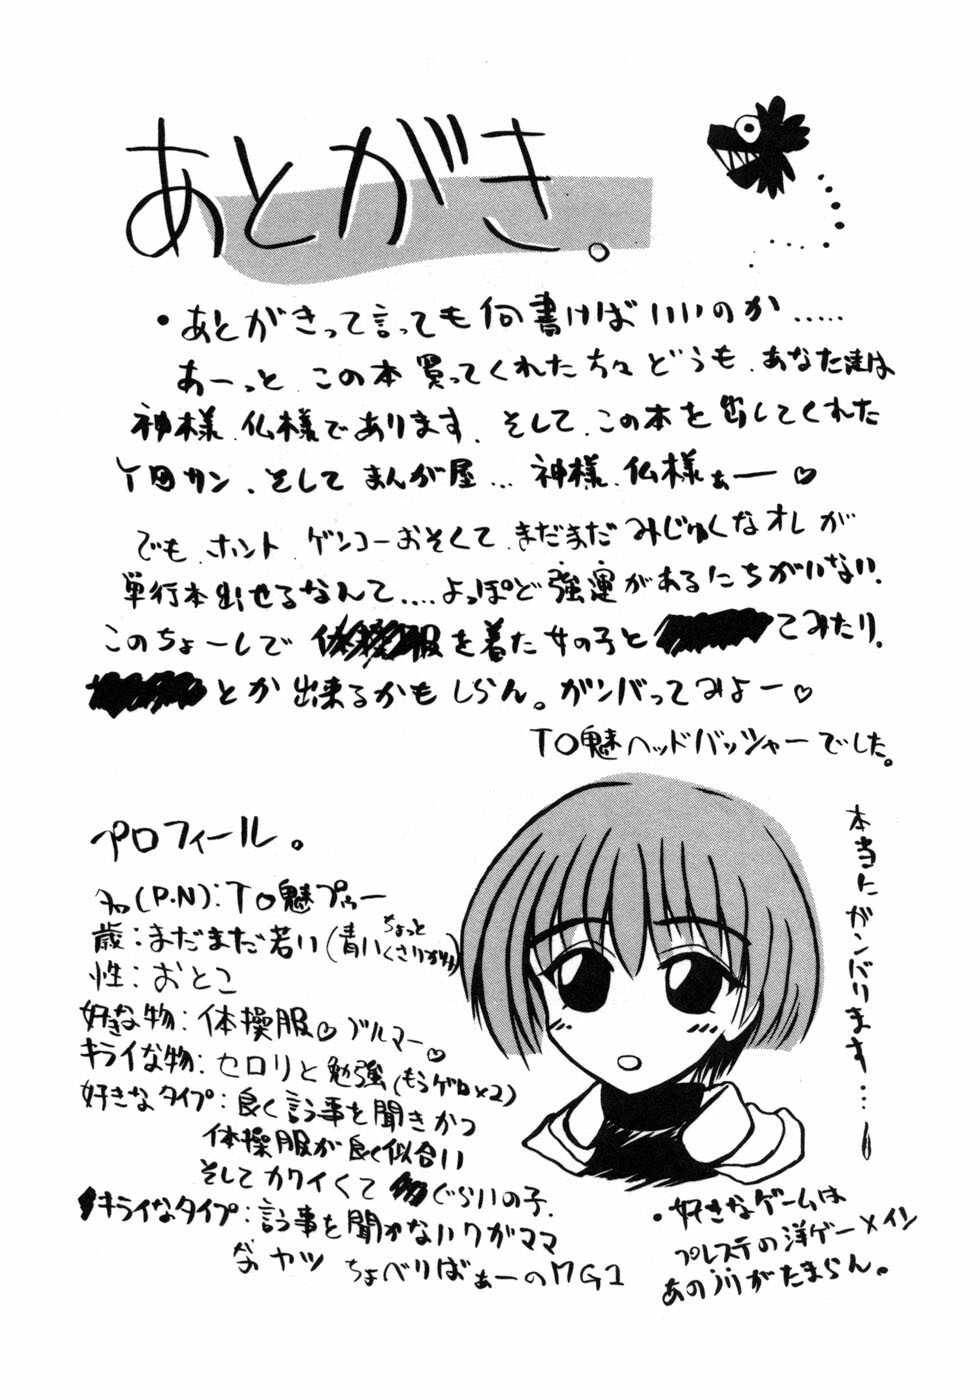 あとがき。
・あとがきって言っても何書けばいいのか.....
あーっと この本買ってくれた方々どうも、あなた達は
神様、仏様であります、そして、この本を出してくれた
Y田サン、そしてまんが屋…神様、仏様ぁー♡
でも、ホント、ゲンコーおそくて、まだまだみじゅくなオレが
単行本出せるなんて....よっぽど強運があるにちがいない、
このちょーしで体操服を着た女の子と てみたり、
とか出来るかもしらん。ガンバってみよー♡
TO魅ヘッドバッシャーでした。
プロフィール。
名(P.N):TO魅プゥー
歳:まだまだ若い(青い ちょっとくさりかけ)
性:おとこ
好きな物:体操服♡ブルマー♡
キライな物:セロリと勉強(もうゲロ×2)
好きなタイプ:良く言う事を聞きかつ
体操服が良く似合い
そしてカワイくて ぐらいの子.
キライなタイプ:言う事を聞かないワガママ
なヤツ ちょべりばぁーのMG1
本当にガンバリます…
・好きなゲームは
プレステの洋ゲーメイン
あのノリがたまらん。